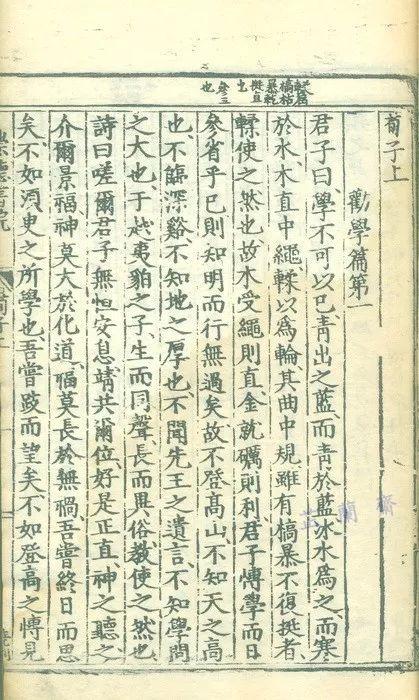 輮屈
槁枯
暴乾
挺直
也
參三
也
荀子上
勸學篇第一
君子曰學不可以已青出之藍而青於藍冰水為之而寒
於水木直中繩輮以為輪其曲中規雖有槁暴不復挺者
輮使之然也故木受繩則直金就礪則利君子博學而日
參省乎已則知明而行無過矣故不登高山不知天之高
也不臨深谿不知地之厚也不聞先王之遺言不知學問
之大也于越夷豹之子生而同聲長而異俗教使之然也
詩曰嗟爾君子無恒安息靖共爾位好是正直神之聽之
介爾景福神莫大於化道福莫長於無禍吾嘗終日而思
矣不如須臾之所學也吾嘗跂而望矣不如登高之博見
芷蘭齋